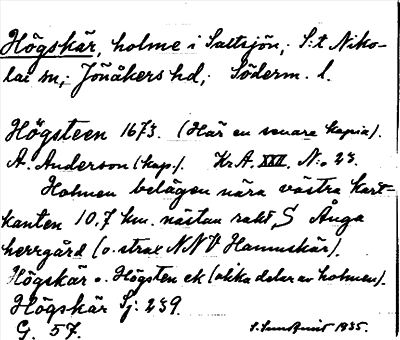 Högskär, holme i Saltsjön, S:t Niko-
lai sn, Jönåkers hd, Söderm. l.
Högsteen 1673. (Här en senare kopia).
A. Anderson (kop.). Kr.A. XXII. N:o 23.
Holmen belägen nära västra kart-
kanten 10,7 km. nästan rakt S Ånga
herrgård (o. strax NNV Hamnskär).
Högskär o. Högsten ek (olika delar av holmen).
Högskär Sj: 239.
G. 57. 1935.